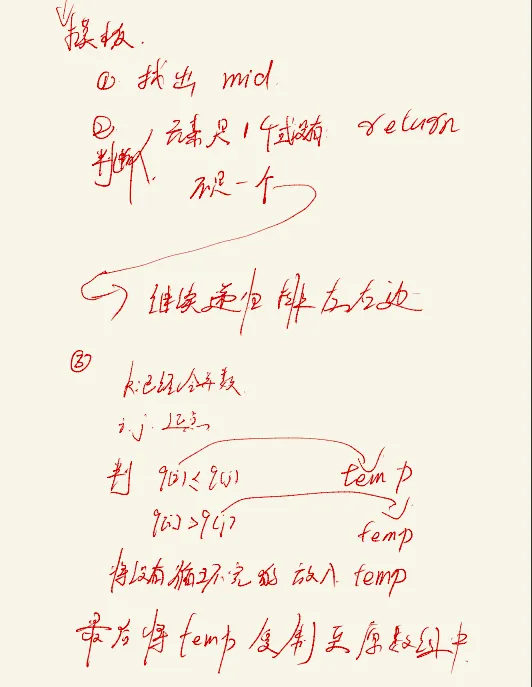 模板.
① 找出 mid
② 判断 元素只1个或没有 return
不只一个
继续递归排左右边
③
k:已经合并数
i.j. 起点
判 q[i]≤q[j] temp
q[i]>q[j] temp
将没有循环完的放入 temp
最后将temp复制至原数组中